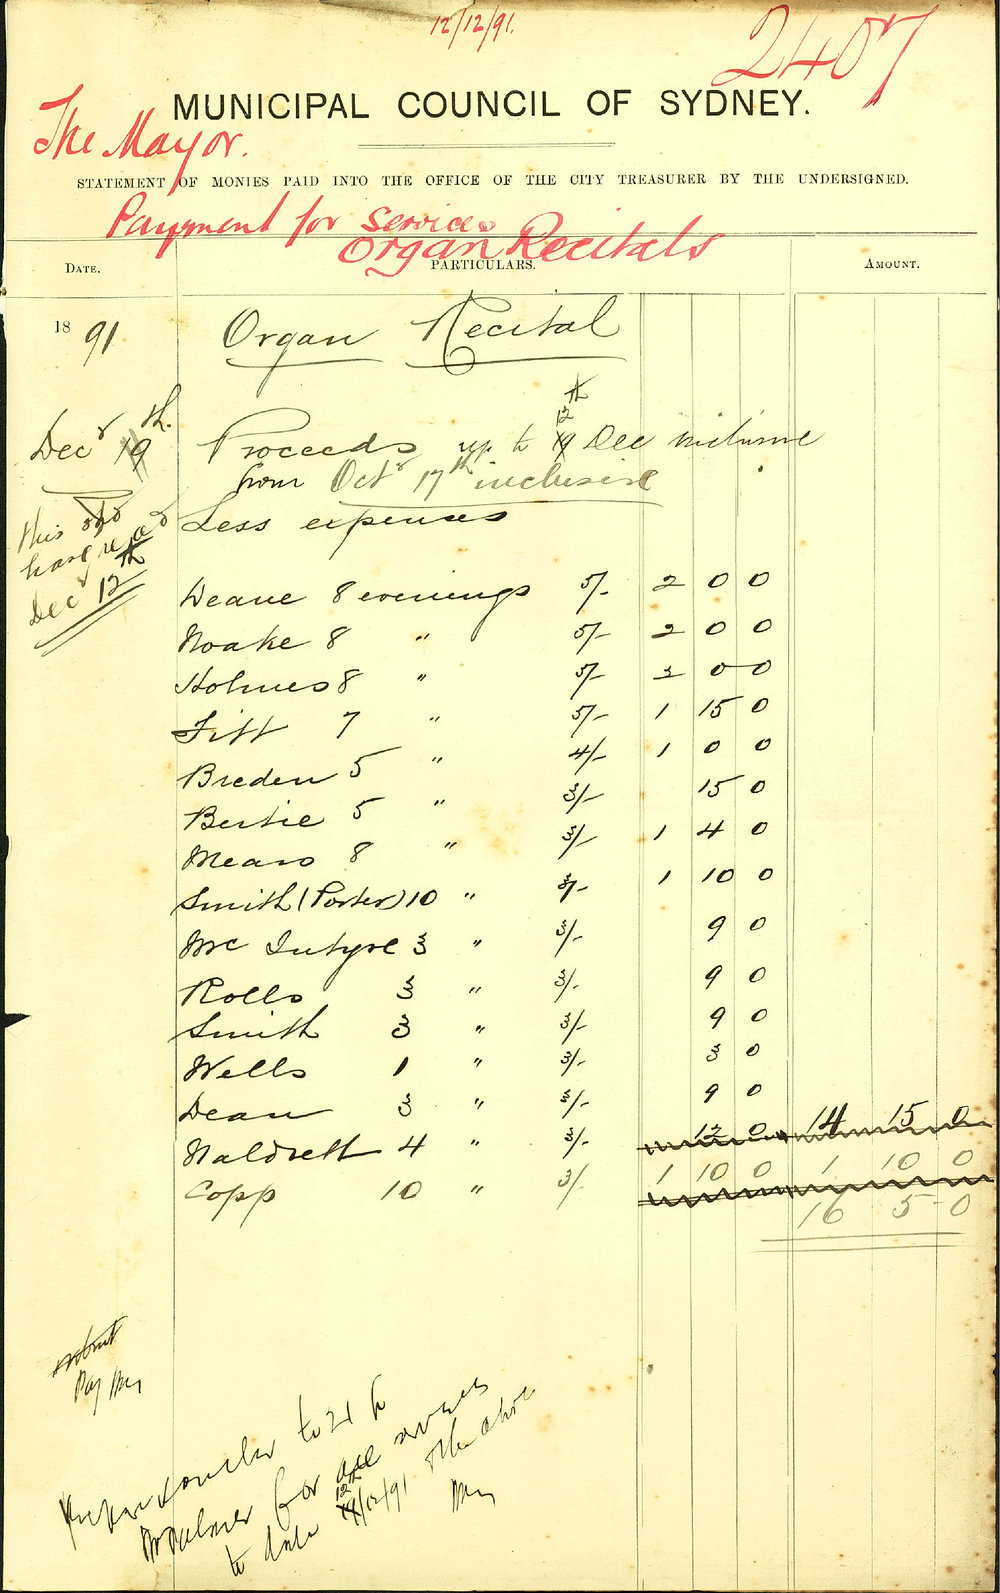 12/12/91.
2407
MUNICIPAL COUNCIL OF SYDNEY.
The Mayor.
STATEMENT OF MONIES PAID INTO THE OFFICE OF THE CITY TREASURER BY THE UNDERSIGNED.
Payment for services
Organ Recitals
DATE. PARTICULARS. AMOUNT.
1891 Organ Recital
Decr 19th. Proceeds up to 19 12th Dec inclusive
from Octr 17th inclusive
this
have read Less expenses
Decr 12th
Deane 8 evenings 5/- 2 0 0
Noake 8 " 5/- 2 0 0
Holmes 8 " 5/- 2 0 0
Fitt 7 " 5/- 1 15 0
Breden 5 " 4/- 1 0 0
Bertie 5 " 3/- 15 0
Mears 8 " 3/- 1 4 0
Smith (Porter) 10 " 3/- 1 10 0
Mc Intyre 3 " 3/- 9 0
Rolls 3 " 3/- 9 0
Smith 3 " 3/- 9 0
Wells 1 " 3/- 3 0
Dean 3 " 3/- 9 0
Naldrett 4 " 3/- 12 0 14 15 0
Copp 10 " 3/. 1 10 0 1 10 0
16 5 0
Pay
voucher
for all
to date 12th/12/91 above